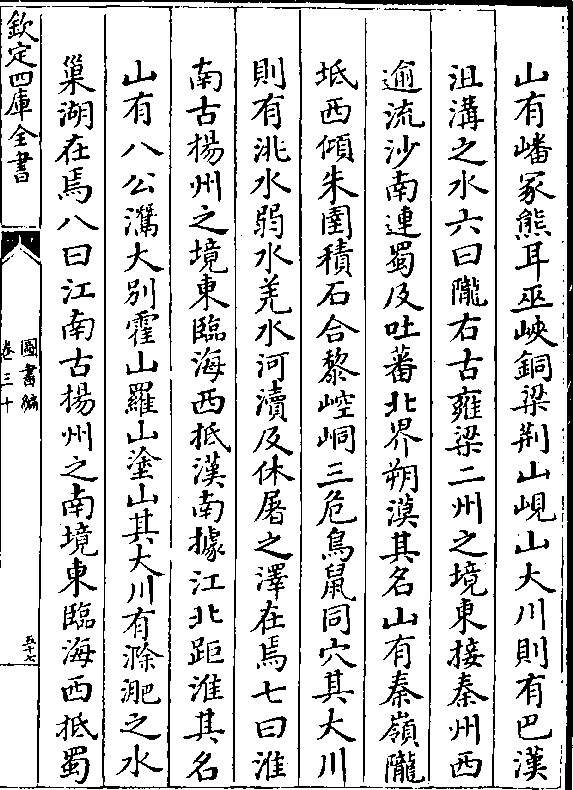 山有嶓冢熊耳巫峽銅梁荆山峴山大川則有巴漢
沮溝之水六曰隴右古雍梁二州之境東接秦州西
逾流沙南連蜀及吐蕃北界朔漠其名山有秦嶺隴
坻西傾朱圉積石合黎崆峒三危鳥鼠同穴其大川
則有洮水弱水羌水河瀆及休屠之澤在焉七曰淮
南古揚州之境東臨海西抵漢南據江北距淮其名
山有八公灊大别霍山羅山塗山其大川有滁淝之水
巢湖在焉八曰江南古揚州之南境東臨海西抵蜀
欽定四庫全書
圖書編
卷三十
五十七